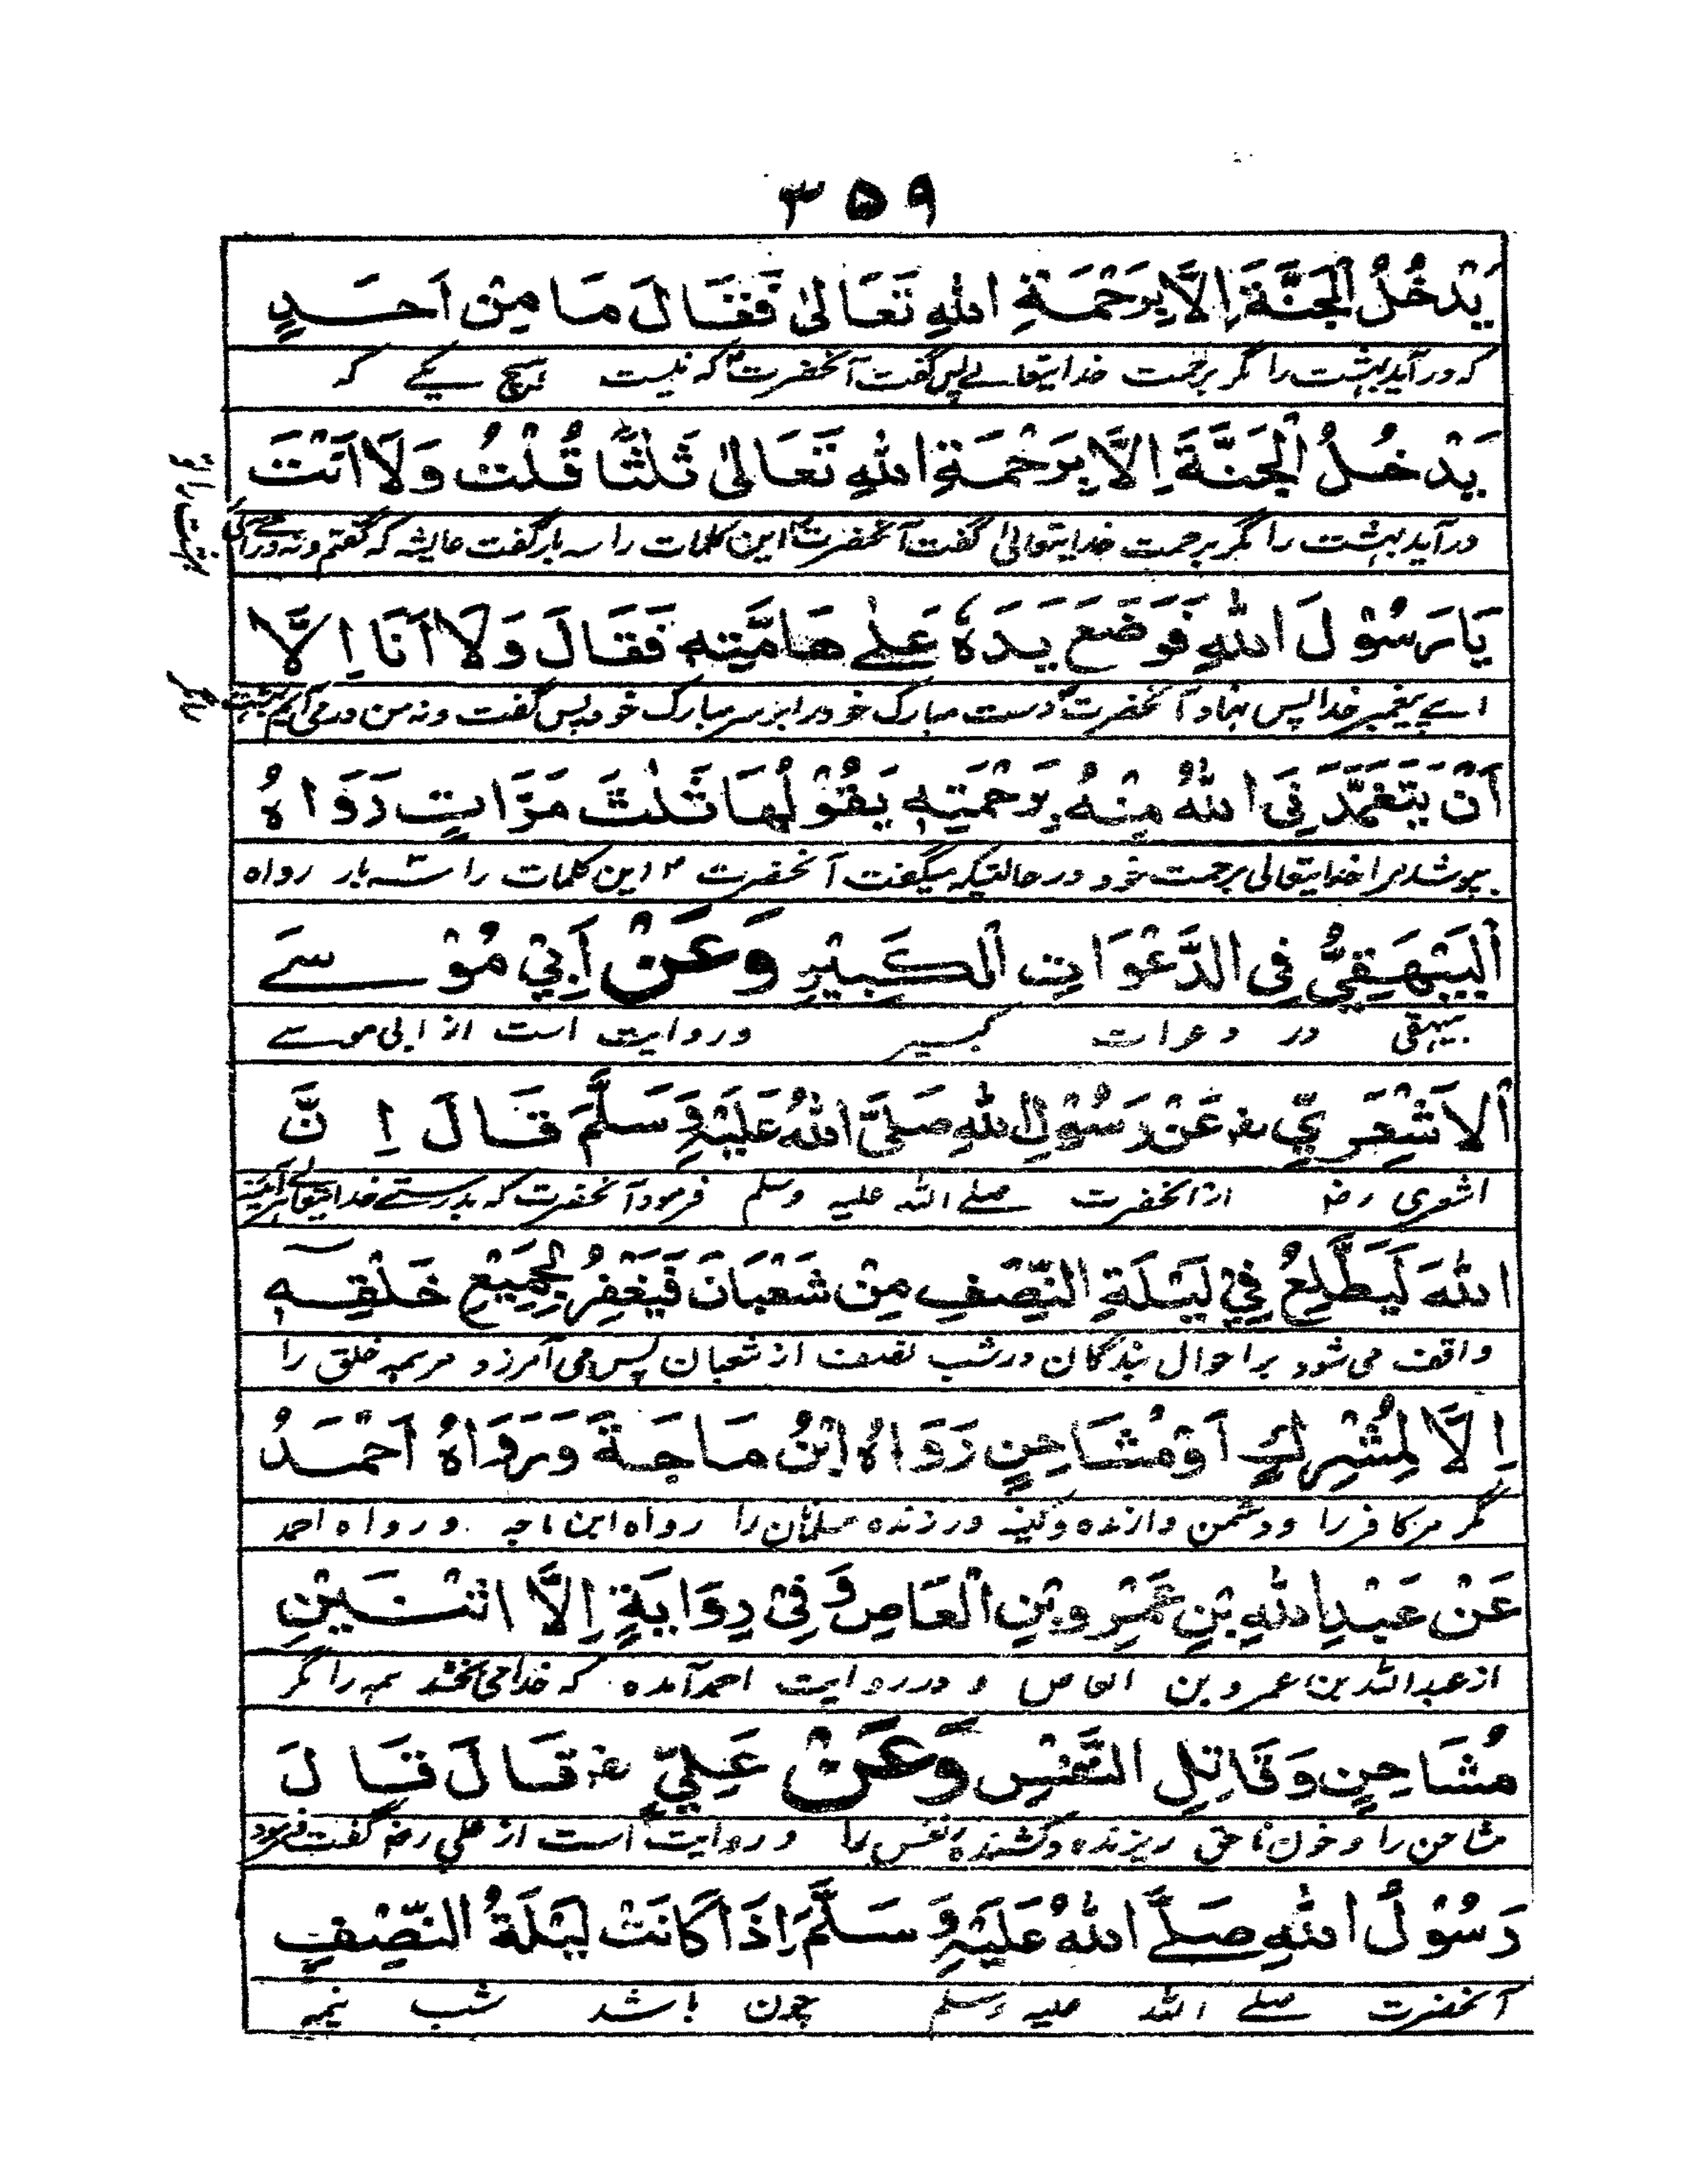 ۳۵۹
يَدْخُلُ الْجَنَّةَ اِلَّا بِرَحْمَةِ اللهِ تَعَالىٰ فَقَالَ مَا مِنْ اَحَدٍ
که درآید بهشت را مگر برحمت خدایتعالے پس گفت آنحضرت که نیست هیچ یکے که
يَدْخُلُ الْجَنَّةَ اِلَّا بِرَحْمَةِ اللهِ تَعَالىٰ ثَلٰثًا قُلْتُ وَلَا اَنْتَ
درآید بهشت را مگر برحمت خدایتعالیٰ گفت آنحضرت این کلمات را سه بار گفت عایشه که گفتم و نه درآئی
يَا رَسُوْلَ اللهِ فَوَضَعَ يَدَهٗ عَلٰے هَامَّتِهٖ فَقَالَ وَلَا اَنَا اِلَّا
اے پیغمبر خدا پس نهاد آنحضرت دست مبارک خود را بر سر مبارک خود پس گفت و نه من درمی آیم بهشت
اَنْ يَتَغَمَّدَنِیَ اللهُ مِنْهُ بِرَحْمَتِهٖ يَقُوْلُهَا ثَلٰثَ مَرَّاتٍ رَوَاهُ
بپوشد مرا خدایتعالی برحمت خود در حالتیکه میگفت آنحضرت این کلمات را سه بار رواه
الْبَيْهَقِيُّ فِی الدَّعْوَاتِ الْكَبِيْرِ وَعَنْ اَبِيْ مُوْسےَ
بیهقی در دعوات کبیر و روایت است از ابی موسے
الْاَشْعَرِيِّ رض عَنْ رَسُوْلِ اللهِ صَلَّى اللهُ عَلَيْهِ وَسَلَّمَ قَالَ اِنَّ
اشعری رض از آنحضرت صلے الله علیه وسلم فرمود آنحضرت که بدرستے خدایتعالے هرآئینه
اللهَ لَيَطَّلِعُ فِيْ لَيْلَةِ النِّصْفِ مِنْ شَعْبَانَ فَيَغْفِرُ لِجَمِيْعِ خَلْقِهٖ
واقف می شود بر احوال بندگان در شب نصف از شعبان پس می آمرزد مر همه خلق را
اِلَّا لِمُشْرِكٍ اَوْ مُشَاحِنٍ رَوَاهُ ابْنُ مَاجَةَ وَرَوَاهُ اَحْمَدُ
مگر مر کافر را و دشمن دارنده و کینه ورزنده مسلمان را رواه ابن ماجه و رواه احمد
عَنْ عَبْدِ اللهِ بْنِ عَمْرِو بْنِ الْعَاصِ وَفِیْ رِوَايَةٍ اِلَّا اثْنَيْنِ
از عبدالله بن عمرو بن العاص و در روایت احمد آمده که خدا می بخشد همه را مگر
مُشَاحِنٍ وَقَاتِلِ النَّفْسِ وَعَنْ عَلِيٍّ رض قَالَ قَالَ
مشاحن را و خون ناحق ریزنده و کشنده نفس را و روایت است از علی رض گفت فرمود
رَسُوْلُ اللهِ صَلَّے اللهُ عَلَيْهِ وَسَلَّمَ اِذَا كَانَتْ لَيْلَةُ النِّصْفِ
آنحضرت صلے الله علیه وسلم چون باشد شب نیمه